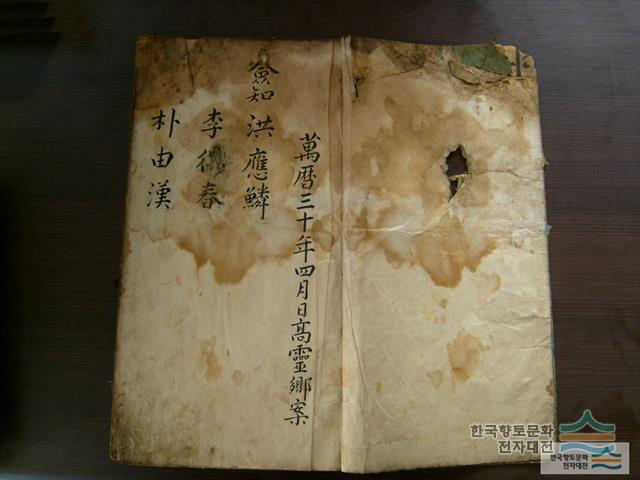 萬曆三十年四月日高靈鄉案
僉知 洪應鱗
李德春
朴由漢
한국향토문화
전자대전
한국향토문화
전자대전